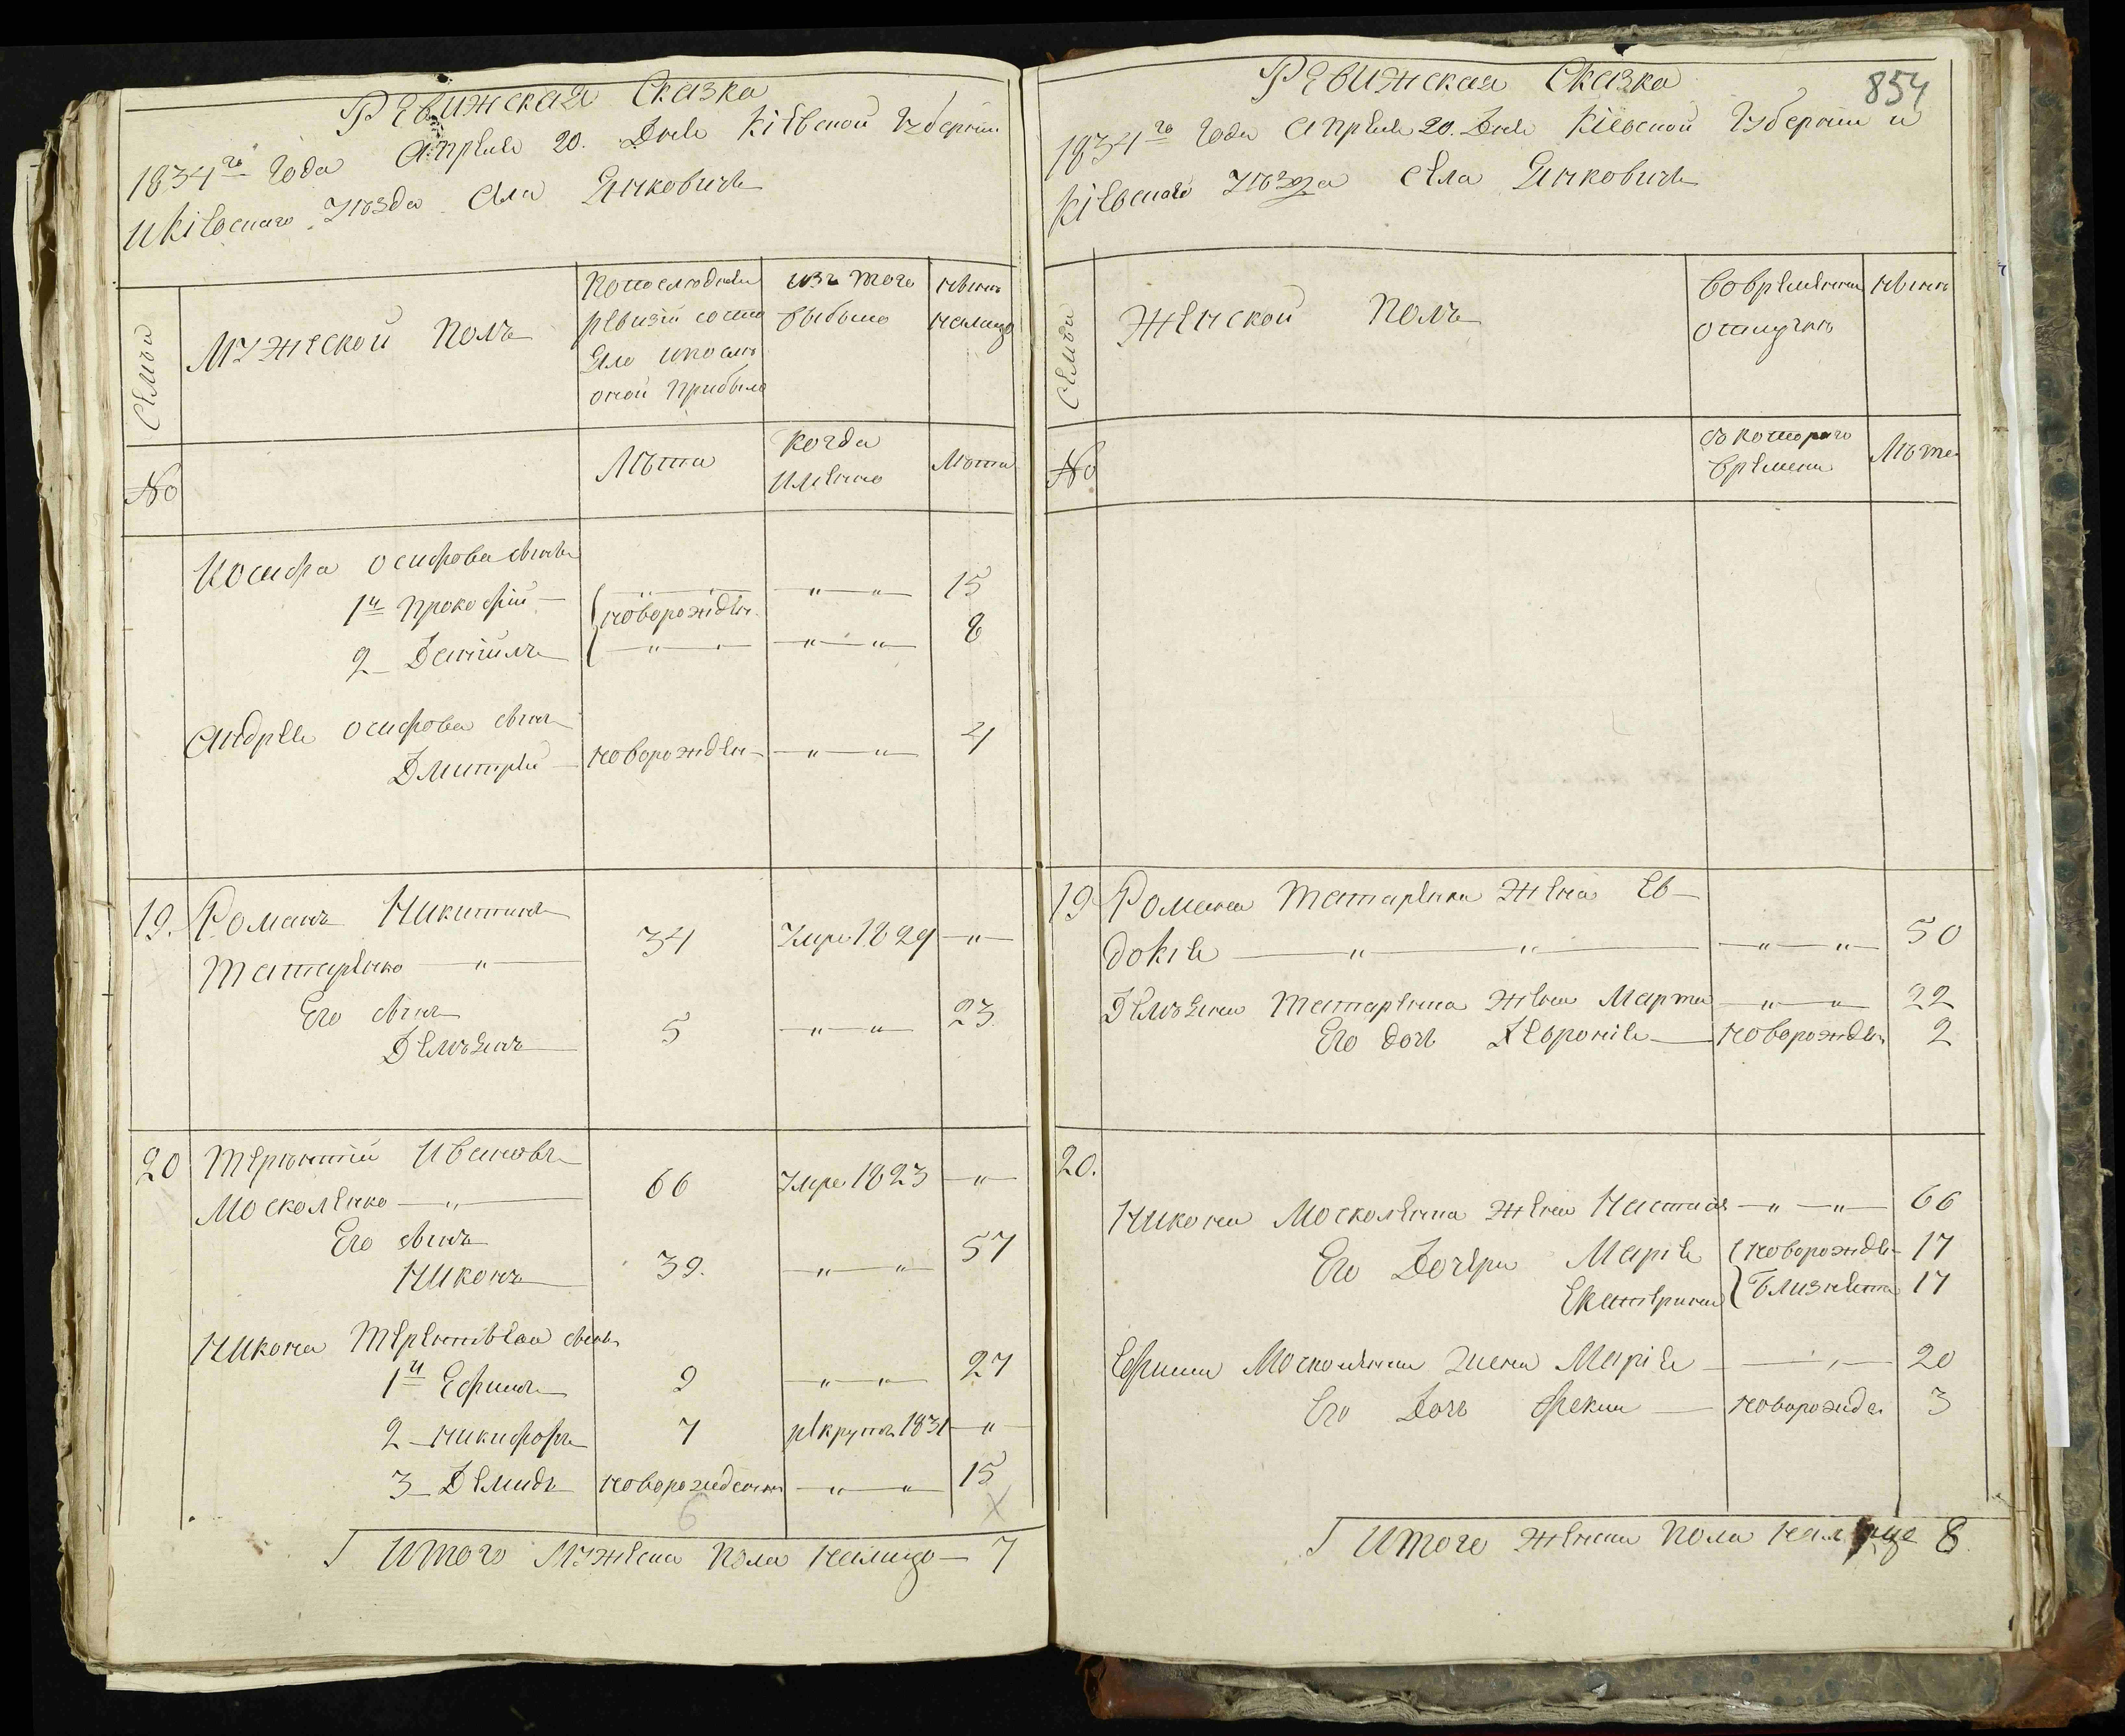 Ревижская Сказка
1834го Года Апреля 20. Дня Кіевской Губерніи
и Кіевскаго Уѣзда Села Янковичь
Семьи
Мужеской полъ
Попоследней
ревизіи состо
яло ипосле
оной прибыло
изъ того
выбыло
ныне
налицо
№
Лѣта
когда
именно
Лѣта
Иосифа осифова сынъ
1й Прокофій — новорожден. — " — " — 15
2 Даніилъ — " — " — " — 8
Андрея осифова сынъ
Дмитрей — новорожден — " — " — 4
19. Романъ Никитинъ
Татаренко — " — 34 Умре 1829 — " —
Его сынъ
Демъянъ 5 — " — " — 23
20 Терентій Ивановъ
Москоленко — " — 66 Умре 1823 — " —
Его сынъ
Никонъ 39. — " — " — 57
Никона Терентіева сынъ
1й Ефимъ 9 — " — " — 27
2 Никифоръ 7 рекрутъ 1831 — " —
3 Демидъ новорожденны — " — " — 15
6 х
Итого Мужеска пола налицо — 7
854
Ревижская Сказка
1834го Года Апреля 20. Дня Кіевской Губерніи и
Кіевскаго Уѣзда Села Янковичь
Семьи
Женской полъ
вовременни
отлучкѣ
ныне
№
съ котораго
времени
Лѣта
19 Романа Татаренка Жена Ев-
докія — " — " — " — " — 50
Демъяна Татаренка жена Марта — " — " — 22
Его дочь Февронія — новорожден 2
20.
Никона Москоленка жена Настасія — " — " — 66
Его Дочери Марія новорожден 17
Екатерина близнята 17
Ефима Москоленка жена Марія — " — 20
Его Дочь Фекла — новорожде. 3
Итого женска пола налице 8